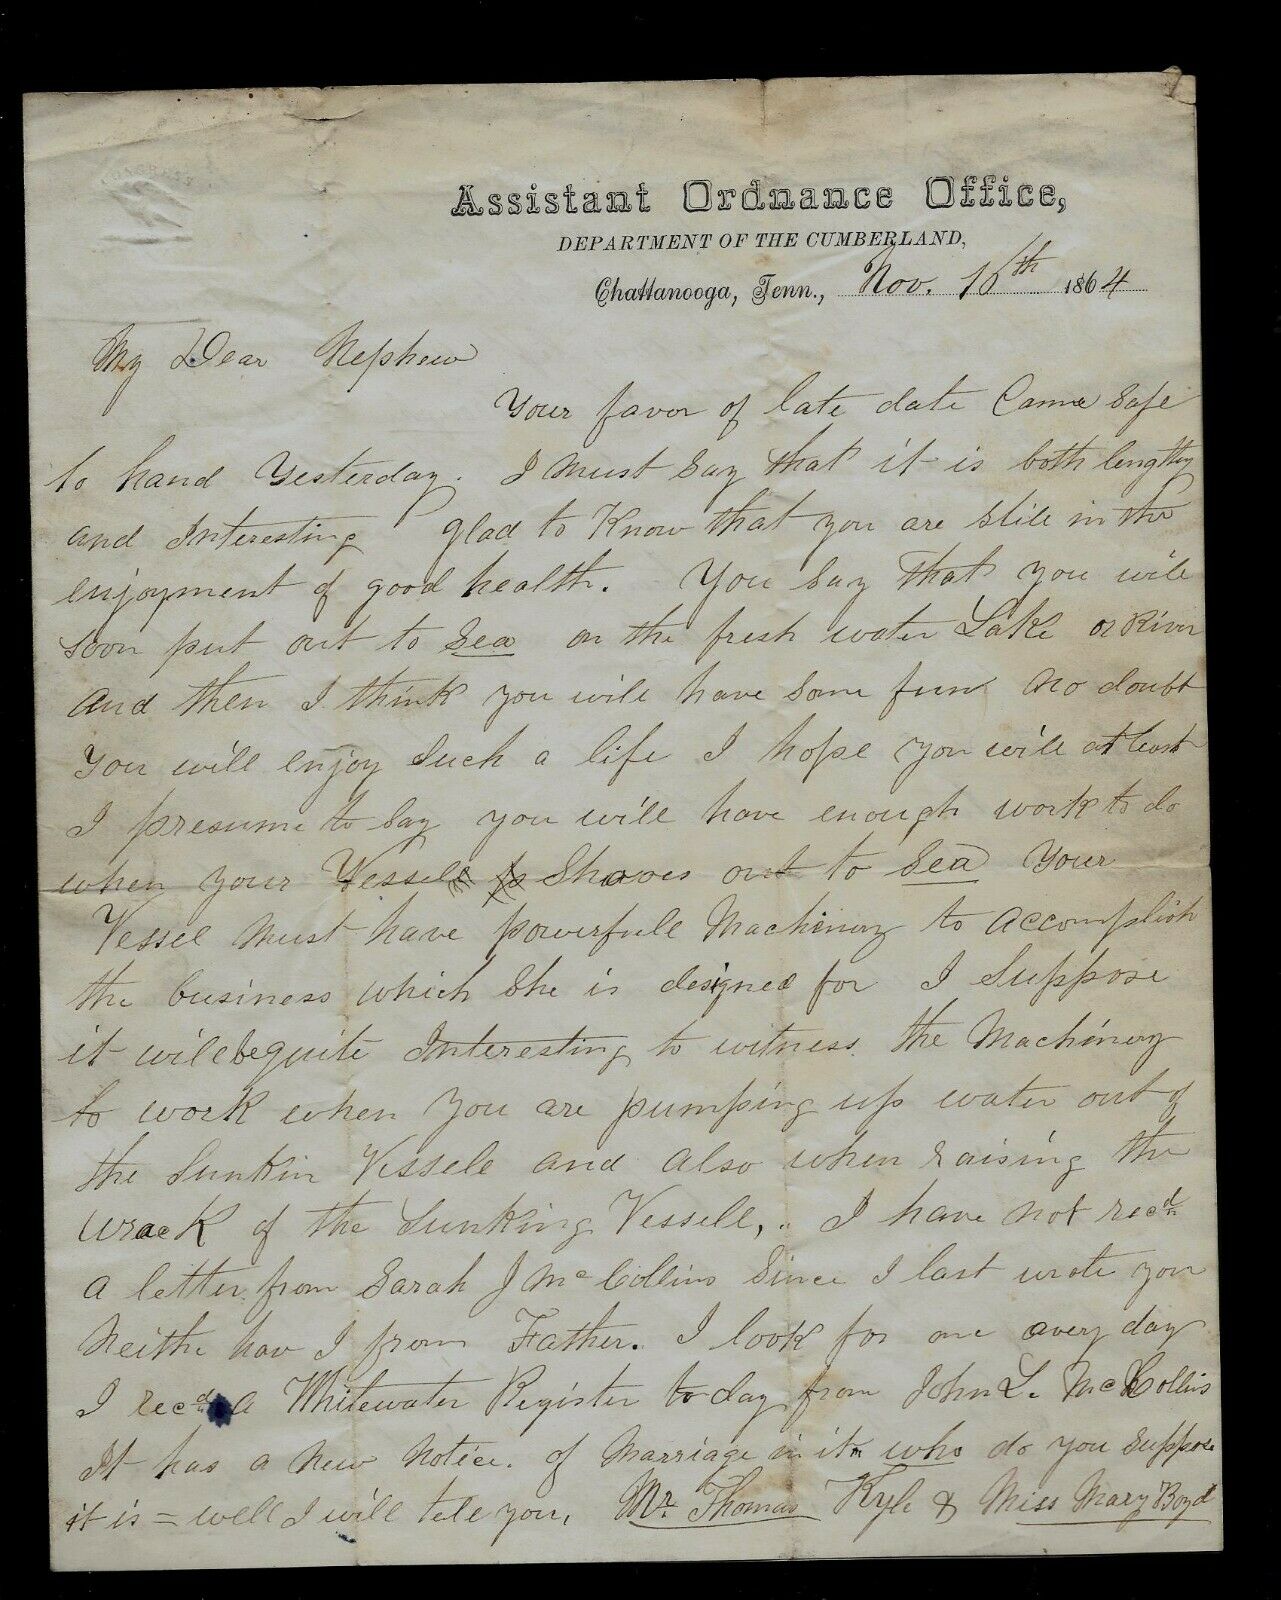 Assistant Ordnance Office,
DEPARTMENT OF THE CUMBERLAND,
Chattanooga, Tenn., Nov. 10th 1864
My Dear Nephew
Your favor of late date Came Safe
to hand Yesterday. I must Say that it is both lengthy
and Interesting glad to Know that you are still in the
enjoyment of good health. You Say that you will
soon put out to Sea on the fresh water Lake or River
and then I think you will have some fun no doubt
You will enjoy Such a life I hope you will at least
I presume to Say you will have enough work to do
when your Vessell Shoves out to Sea Your
Vessel must have powerfull Machinery to accomplish
the business which She is designed for I Suppose
it will be quite Interesting to witness the Machinery
to work when you are pumping up water out of
the Sunkin Vessele and also when raising the
wrack of the Sunking Vessell, I have not recd
a letter from Sarah J McCollins Since I last wrote you
Neithe hav I from Father. I look for one every day
I recd a Whitewater Register to day from John L. McCollins
It has a new notice. of Marriage in it who do you suppose
it is = well I will tele you, Mr. Thomas Kyle & Miss Mary Boyd